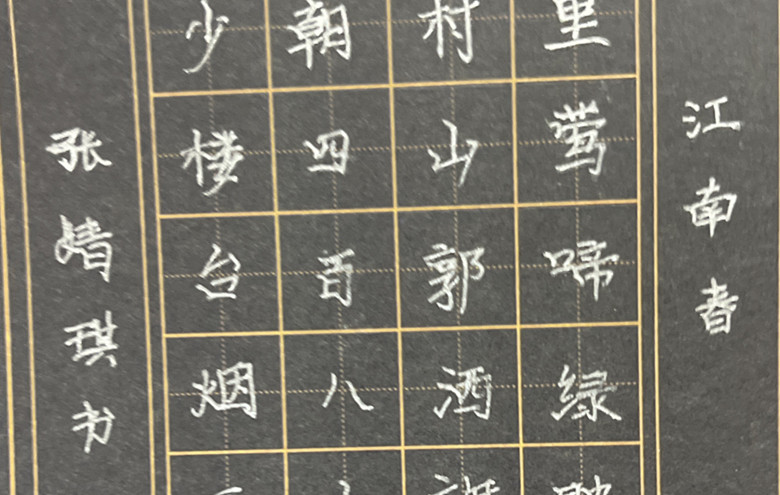 江南春
里莺啼绿
村山郭酒
朝四百八
少楼台烟
张婧琪书